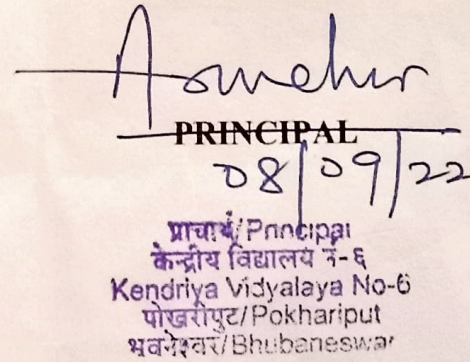 PRINCIPAL
08/09/22
प्राचार्य/Principal
केन्द्रीय विद्यालय नं-६
Kendriya Vidyalaya No-6
पोखरीपुट/Pokhariput
भुवनेश्वर/Bhubaneswar